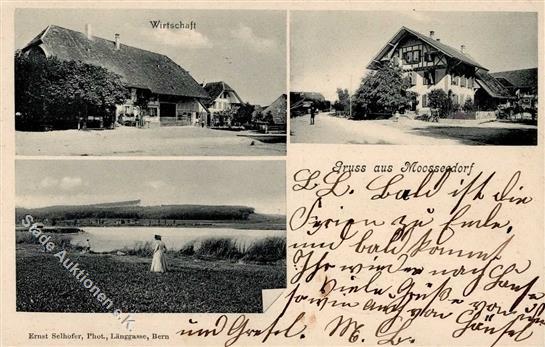 Wirtschaft
Gruss aus Moosseedorf
L. L. Bald ist die
Ferien zu Ende,
und bald kommt
Ihr wieder nach Hause
Viele Grüße von uns
sowie auch von Hänsel
und Gretel. M. L.
Ernst Selhofer, Phot., Länggasse, Bern
Stade Auktionen